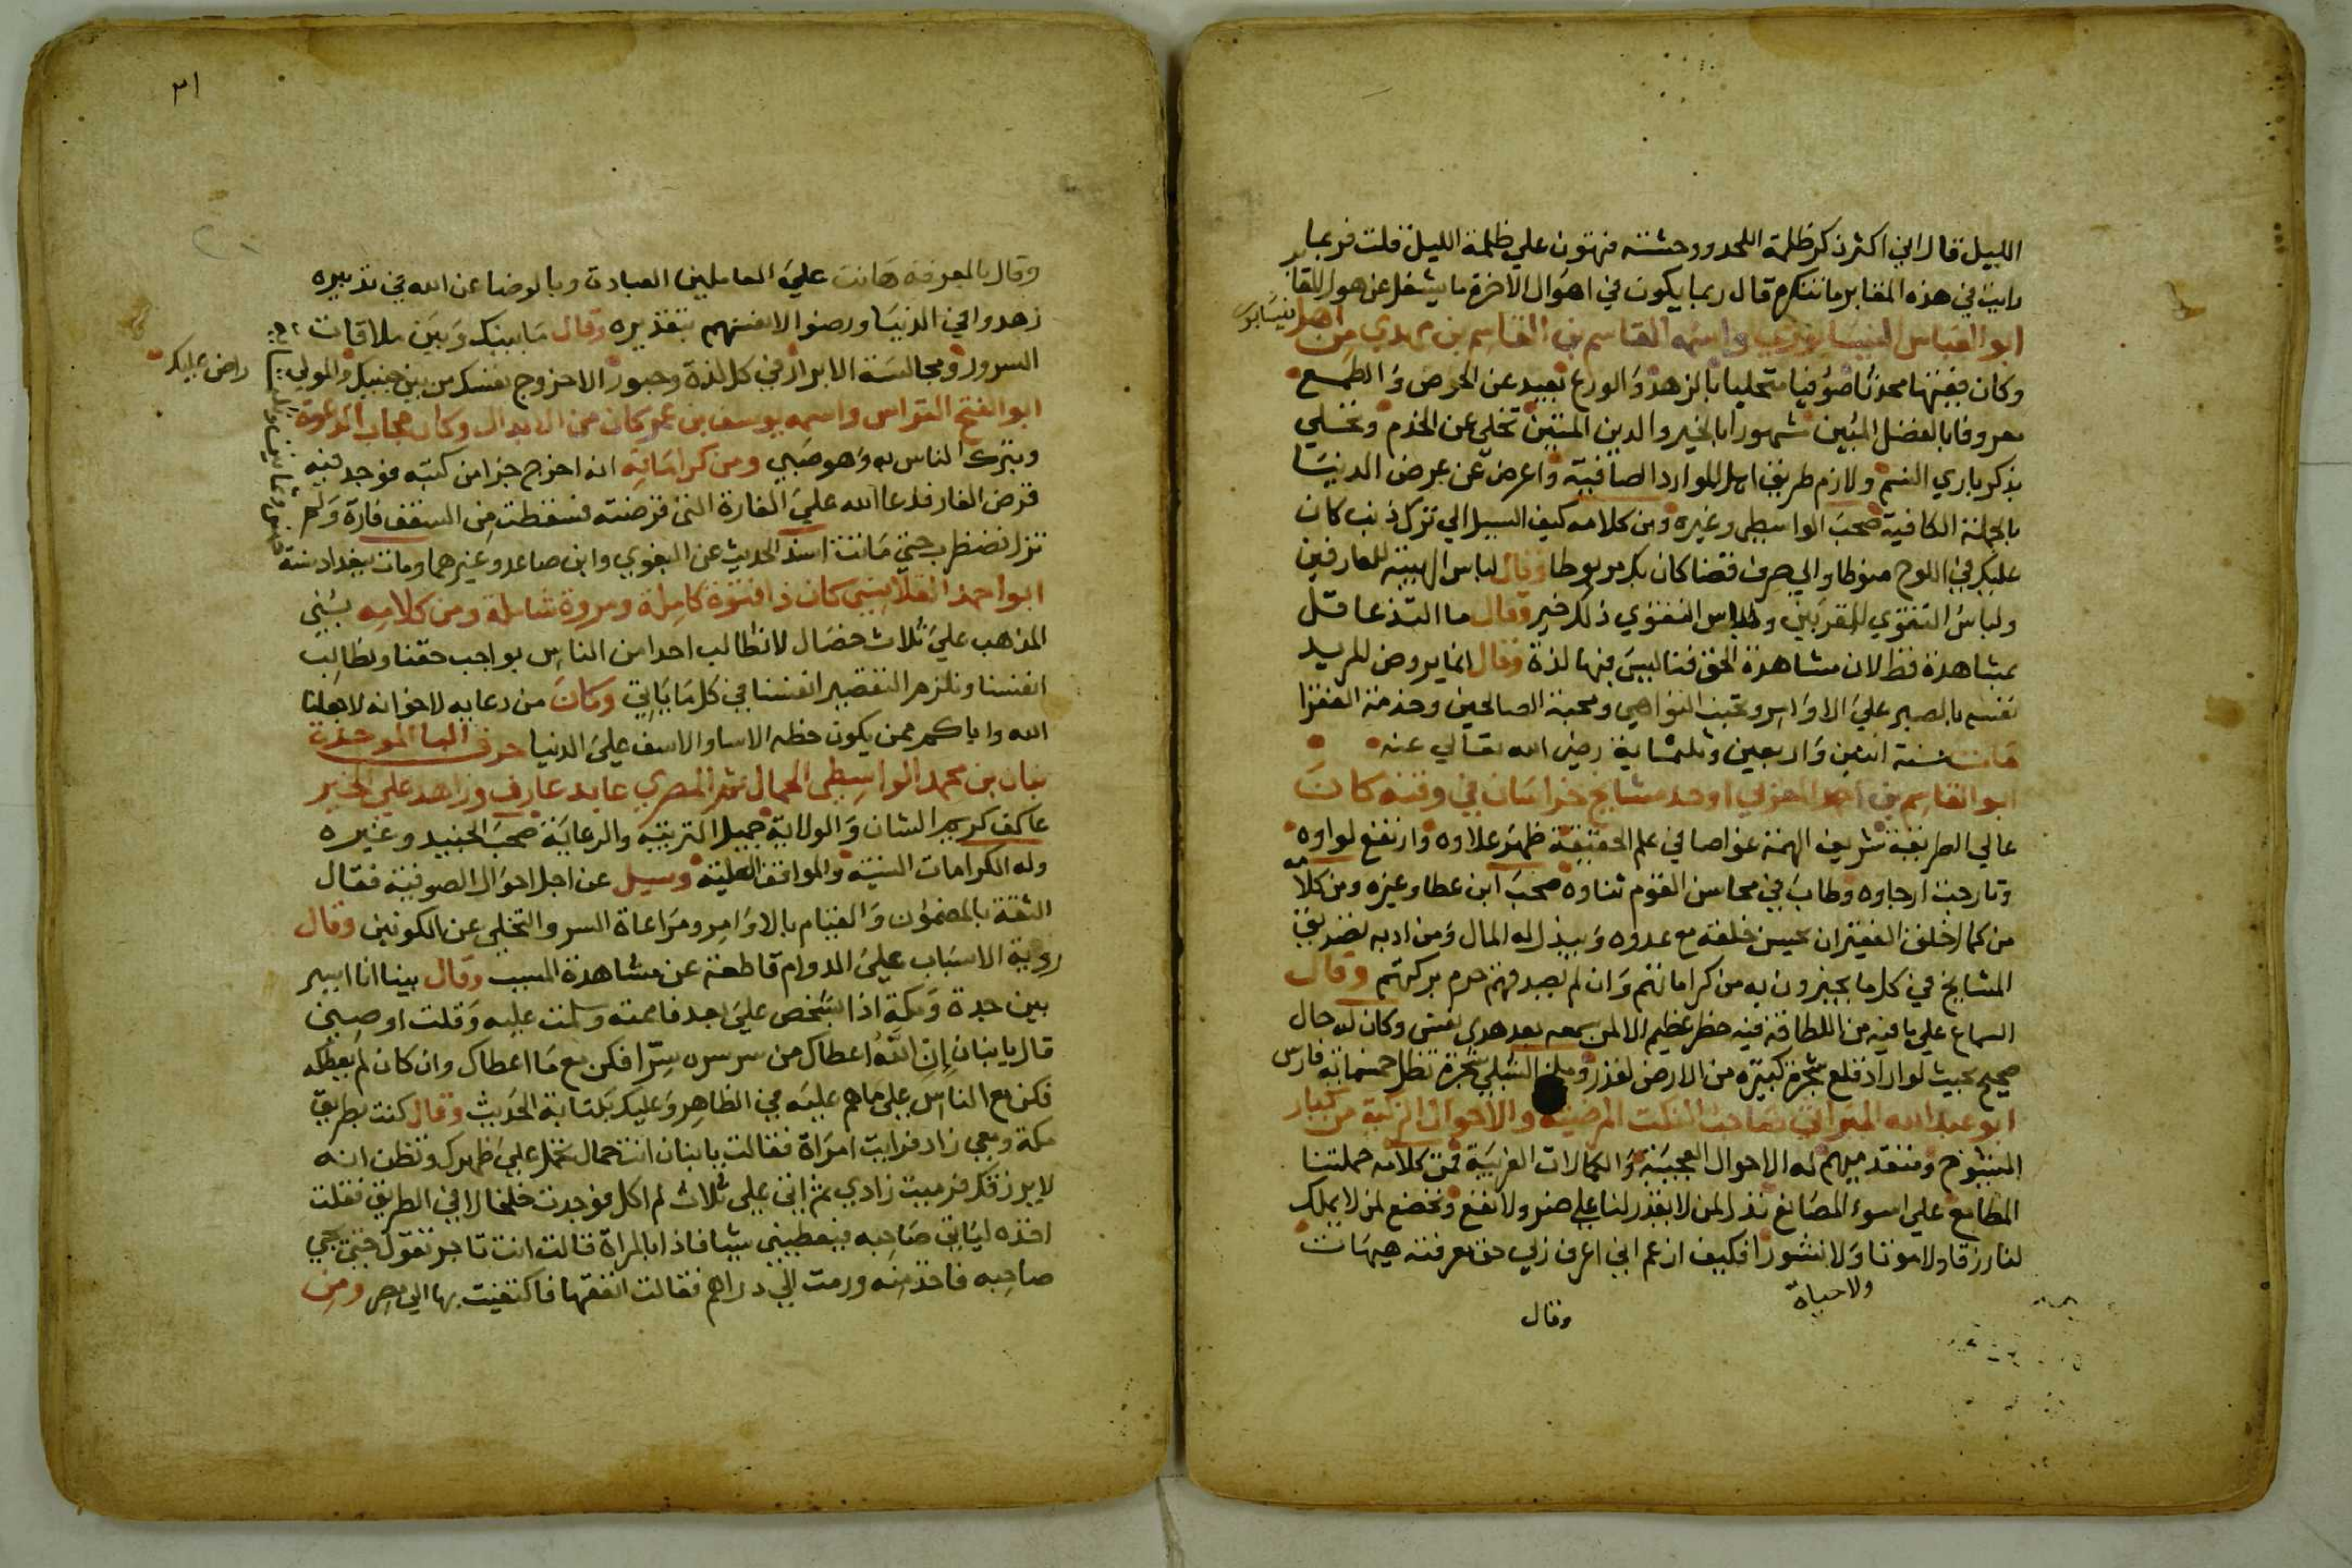 الليل قال اني اكثر ذكر ظلمة اللحد ووحشته فتهون علي ظلمة الليل قلت فربما
رايت في هذه المقابر ما تنكره قال ربما يكون في اهوال الاخرة ما يشغل عن هول المقابر
ابو العباس النيسابوري واسمه القاسم بن القاسم بن مهدي من اهل
نيسابور
وكان فقيها محدثا صوفيا متحليا بالزهد والورع بعيد عن الحرص والطمع
معروفا بالفضل المبين مشهورا بالخير والدين المتين تخلي عن الخدم وتسلي
بذكر باري النسم ولازم طريق اهل الموارد الصافية واعرض عن عرض الدنيا
بالجملة الكافية صحب الواسطي وغيره ومن كلامه كيف السبيل الي ترك ذنب كان
عليك في اللوح محفوظا والي صرف قضا كان بك مربوطا وقال لباس الهيبة للعارفين
ولباس التقوي للمقربين ولباس التقوي ذلك خير وقال ما التذ عاقل
بمشاهدة قط لان مشاهدة الحق فنا ليس فيها لذة وقال انما يروض المريد
نفسه بالصبر علي الاوامر وتجنب النواهي ومحبة الصالحين وخدمة الفقرا
مات سنة اثنين واربعين وثلثماية رضي الله تعالي عنه
ابو القاسم بن احمد المقري اوحد مشايخ خراسان في وقته كان
عالي الطريقة شريف الهمة غواصا في علم الحقيقة ظهر علاوه وارتفع لواوه
وتارجت ارجاوه وطاب في محاسن القوم ثناوه صحب ابن عطا وغيره ومن كلامه
من كمال خلق الفقير ان يحسن خلقه مع عدوه ويبذل له المال ومن ادبه تصديق
المشايخ في كل ما يخبرون به من كراماتهم وان لم يصدقهم حرم بركتهم وقال
السماع علي ما فيه من اللطافة فيه خطر عظيم الا لمن سمعه بعد هدي نفس وكان له حال
صحيح بحيث لو اراد قلع شجرة كبيرة من الارض لقدر شجرة تظل خمسماية فارس
ابو عبد الله صاحب النكت المرضية والاحوال الزكية من كبار
الشيوخ ومتقدميهم له الاحوال العجيبة والكمالات الغريبة فمن كلامه حملتنا
المطامع علي اسوء المصانع نذل لمن لا يقدر لنا علي ضر ولا نفع ونخضع لمن لا يملك
لنا رزقا ولا موتا ولا نشورا فكيف ازعم اني اعرف ربي حق معرفته هيهات
ولا حياة
وقال
٣١
وقال بالمعرفة هانت علي العاملين العبادة وبالرضا عن الله في تدبيره
زهدوا في الدنيا ورضوا لانفسهم بتقديره وقال ما بينك وبين ملاقات
السرور ومجالسة الابرار في كل لذة وحبور الا خروج نفسك من بين جنبيك والمولي
راض عليك
ابو الفتح القواس واسمه يوسف بن عمر كان من الابدال وكان مجاب الدعوة
وتبرك الناس به وهو صبي ومن كراماته انه اخرج جزا من كتبه فوجد فيه
قرض الفار فدعا الله علي الفارة التي قرضته فسقطت من السقف فارة ولم
تزل تضطرب حتي ماتت اسند الحديث عن البغوي وابن صاعد وغيرهما ومات ببغداد سنة
ابو احمد القلانسي كان ذا فتوة كاملة ومروة شاملة ومن كلامه بني
المذهب علي ثلاث خصال لا نطالب احدا من الناس بواجب حقنا ونطالب
انفسنا ونلزم التقصير انفسنا في كل ما ياتي وكان من دعايه لاخوانه لا جعلنا
الله واياكم ممن يكون حظه الاسا والاسف علي الدنيا حرف البا الموحدة
بنان بن محمد الواسطي الحمال ثم المصري عابد عارف وزاهد علي الخير
عاكف كريم الشان والولاية جميل التربية والرعاية صحب الجنيد وغيره
وله الكرامات السنية والمواقف العلية وسيل عن اجل احوال الصوفية فقال
الثقة بالمضمون والقيام بالاوامر ومراعاة السر والتخلي عن الكونين وقال
روية الاسباب علي الدوام قاطعة عن مشاهدة المسبب وقال بينا انا اسير
بين جدة ومكة اذا بشخص علي بعد فاممته وسلمت عليه وقلت اوصني
قال يا بنان ان الله اعطاك من سر سره سرا فكن مع ما اعطاك وان كان لم يعطك
فكن مع الناس علي ما هم عليه في الظاهر وعليك بكتابة الحديث وقال كنت بطريق
مكة ومعي زاد فرايت امراة فقالت يا بنان انت حمال تحمل علي ظهرك وتظن انه
لا يرزقك فرميت زادي ثم اتي علي ثلاث لم اكل فوجدت خلخالا في الطريق فقلت
اخذه لياتي صاحبه فيعطيني شيا فاذا بالمراة قالت انت تاجر تقول حتي يجي
صاحبه فاخذ منه ورمت الي دراهم فقالت انفقها فاكتفيت بها الي مصر ومن